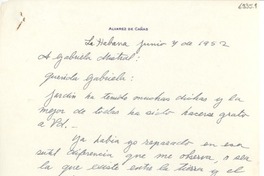 ALVAREZ DE CAÑAS
La Habana, Junio 4 de 1952
A Gabriela Mistral:
Querida Gabriela:
Jardín ha tenido muchas dichas y la
mejor de todas ha sido hacerse grato
a Vd.
Ya había yo reparado en esa
sutil diferencia que me observa, o sea
la que existe entre la tierra y el